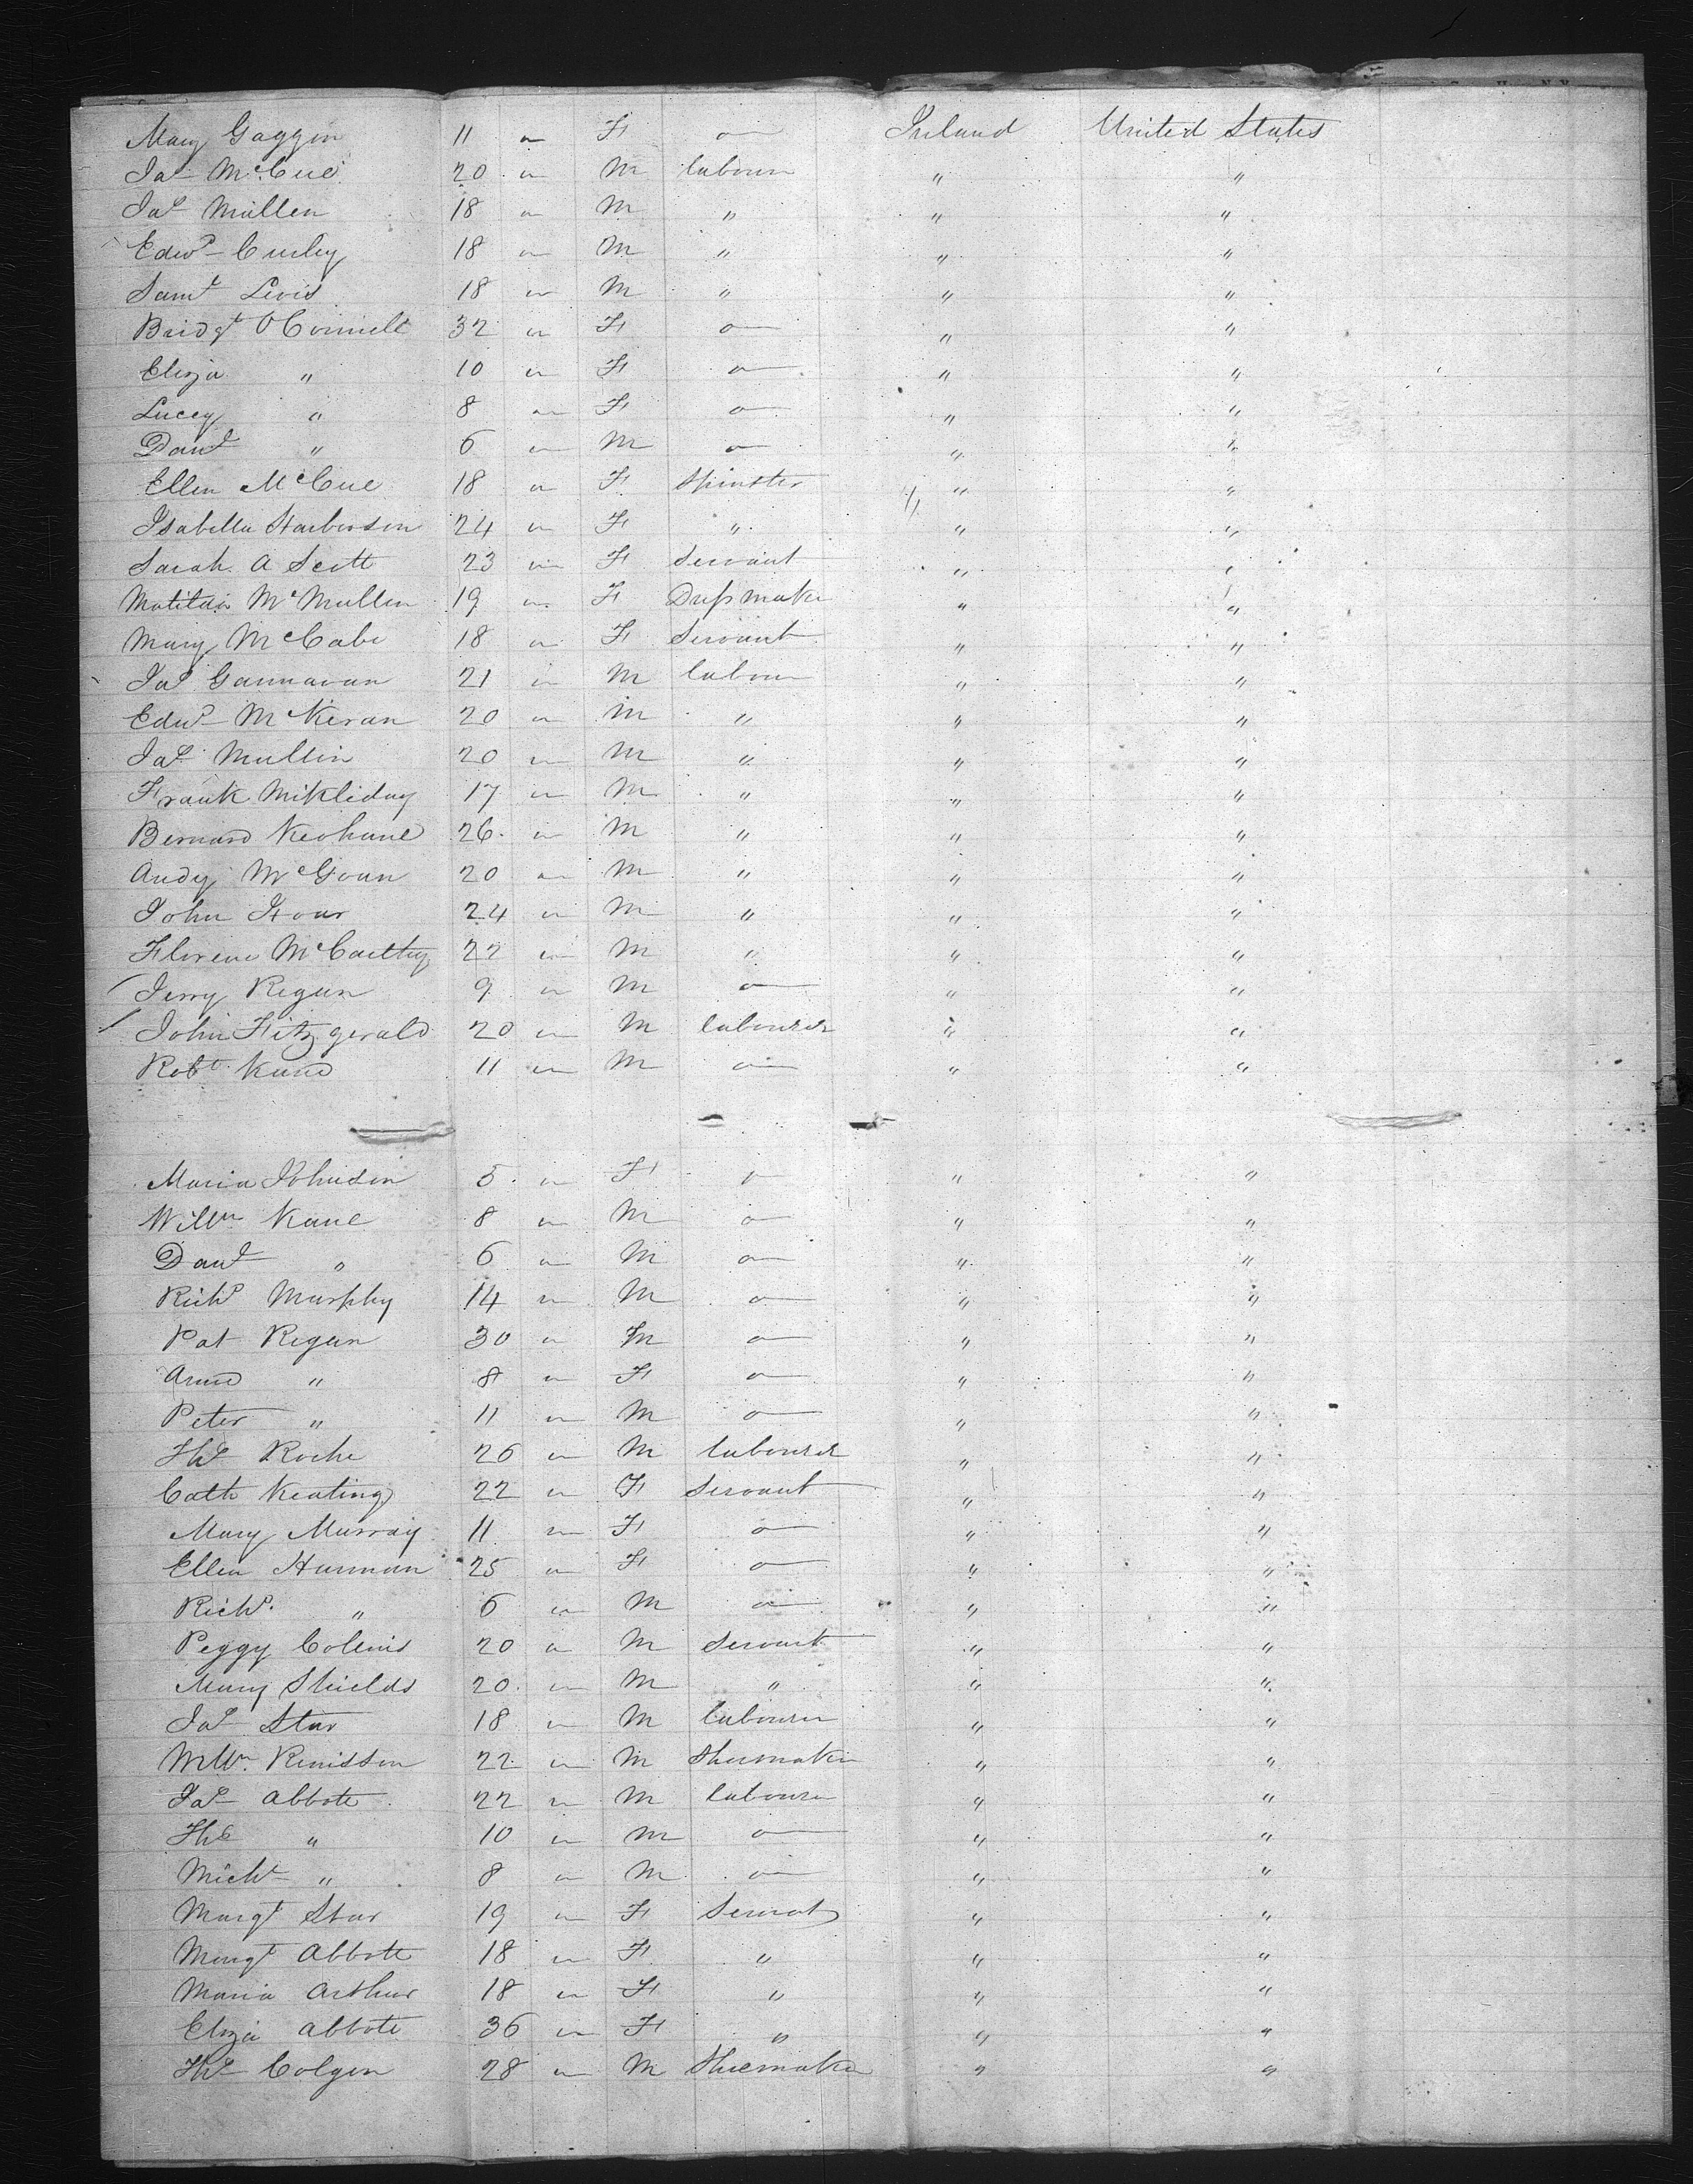 Mary Gaggin 11 " F — Ireland United States
Jas McCue 20 " M labourer " "
Jas Mullen 18 " M " " "
Edwd Curley 18 " M " " "
Saml Levis 18 " M " " "
Bridgt OConnell 32 " F — " "
Eliza " 10 " F — " "
Lucey " 8 " F — " "
Danl " 6 " M — " "
Ellen McCue 18 " F Spinster " "
Isabella Harbeson 24 " F " " "
Sarah A Scott 23 " F Servant " "
Matilda McMullen 19 " F Dressmaker " "
Mary McCabe 18 " F Servant " "
Jas Gannavan 21 " M labour " "
Edwd McKevan 20 " M " " "
Jas Mullin 20 " M " " "
Frank 17 " M " " "
Bernard Keohane 26 " M " " "
Andy McGoun 20 " M " " "
John 24 " M " " "
Florence McCarthy 22 " M " " "
Jerry Regan 9 " M — " "
John Fitzgerald 20 " M labourer " "
Robt Kane 11 " M — " "
Maria Johnson 5 " F — " "
Willm Kane 8 " M — " "
Danl " 6 " M — " "
Richd Murphy 14 " M — " "
Pat Regan 30 " M — " "
Anne " 8 " F — " "
Peter " 11 " M — " "
Ths Roche 26 " M labourer " "
Cath Keating 22 " F Servant " "
Mary Murray 11 " F — " "
Ellen Hannan 25 " F — " "
Richd " 6 " M — " "
Peggy Collins 20 " M Servant " "
Mary Shields 20 " M " " "
Jas Star 18 " M labourer " "
Wm. Renisson 22 " M Shoemaker " "
Jas Abbott 22 " M labourer " "
Ths " 10 " M — " "
Michl " 8 " M — " "
Margt Star 19 " F Servat " "
Margt Abbott 18 " F " " "
Maria Arthur 18 " F " " "
Eliza Abbott 36 " F " " "
Ths Colgan 28 " M Shoemaker " "